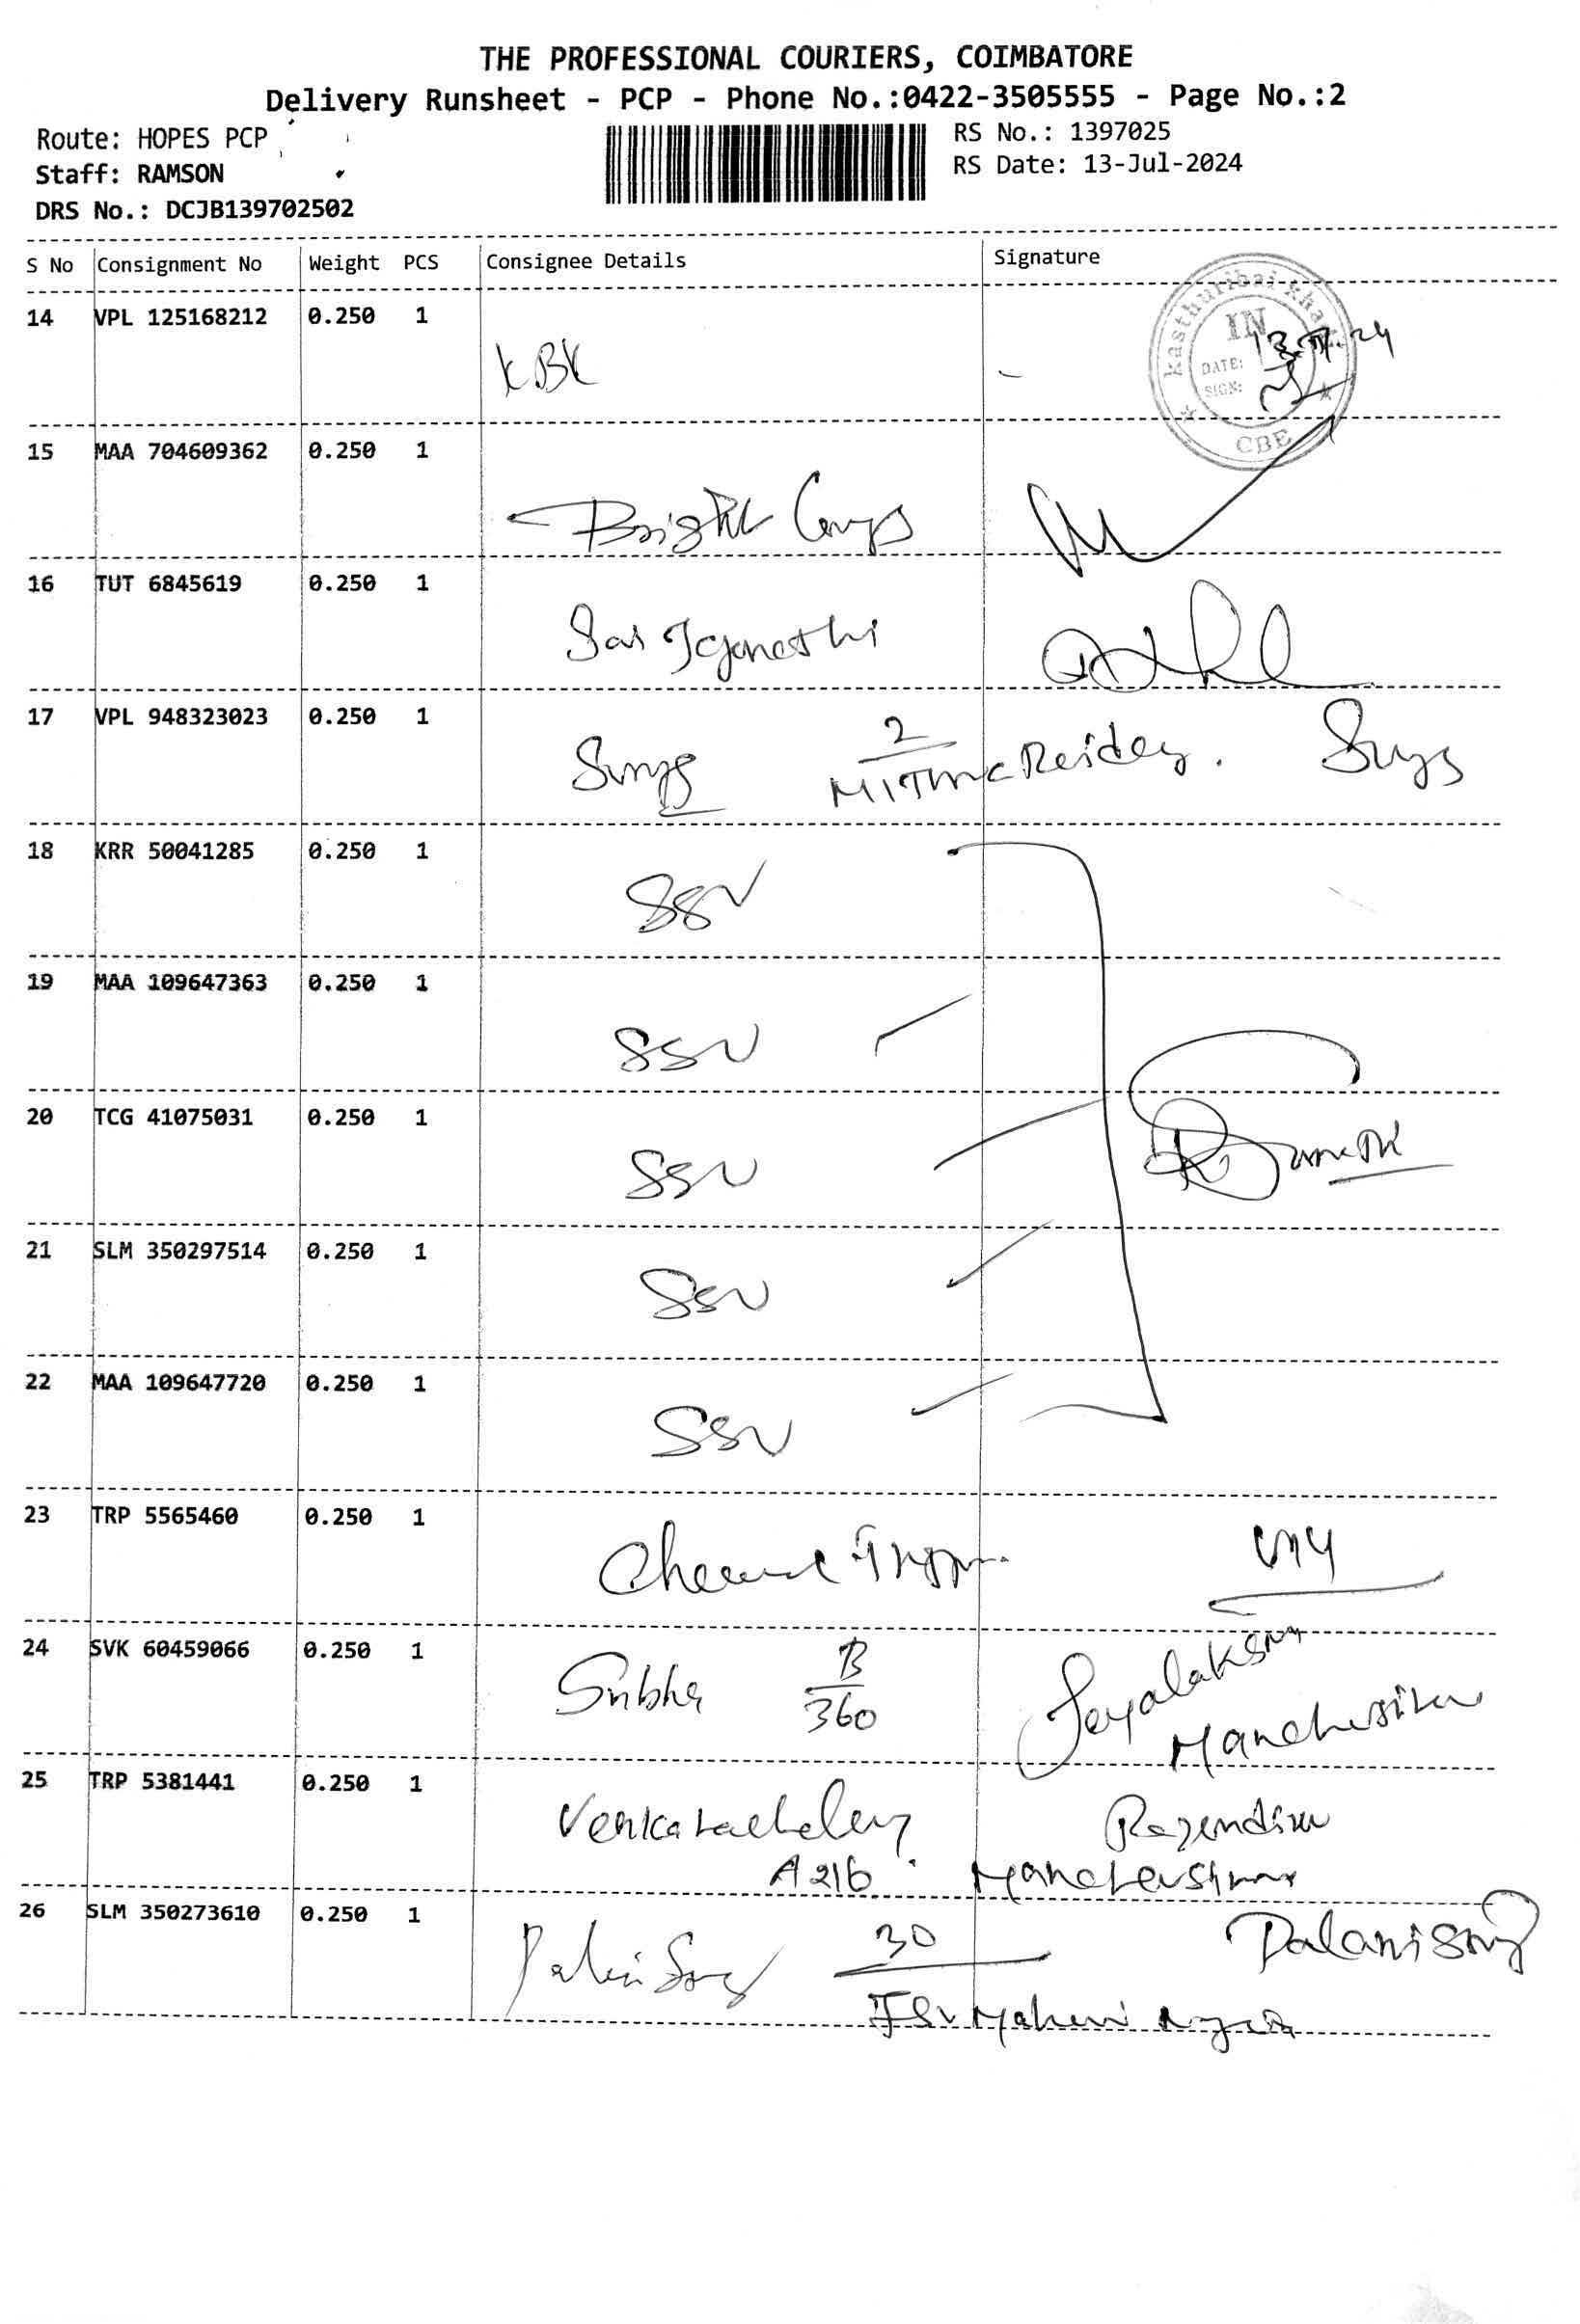 THE PROFESSIONAL COURIERS, COIMBATORE
Delivery Runsheet - PCP - Phone No.:0422-3505555 - Page No.:2
Route: HOPES PCP
RS No.: 1397025
Staff: RAMSON
RS Date: 13-Jul-2024
DRS No.: DCJB139702502
S No Consignment No Weight PCS Consignee Details Signature
14 VPL 125168212 0.250 1
KBK
Kasthuribai Khadi
IN
DATE:
SIGN:
CBE
15 MAA 704609362 0.250 1
Bright
16 TUT 6845619 0.250 1
Sai
17 VPL 948323023 0.250 1
2
18 KRR 50041285 0.250 1
SSV
19 MAA 109647363 0.250 1
SSV
20 TCG 41075031 0.250 1
SSV
21 SLM 350297514 0.250 1
SSV
22 MAA 109647720 0.250 1
SSV
23 TRP 5565460 0.250 1
24 SVK 60459066 0.250 1
Subha B 360
25 TRP 5381441 0.250 1
A 216
26 SLM 350273610 0.250 1
30 Palanisamy